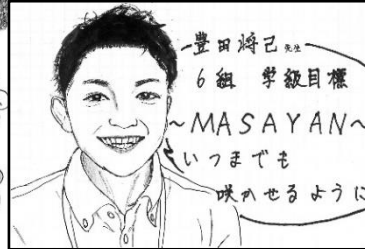 豊田将己先生
6組 学級目標
~MASAYAN~
いつまでも
咲かせるように